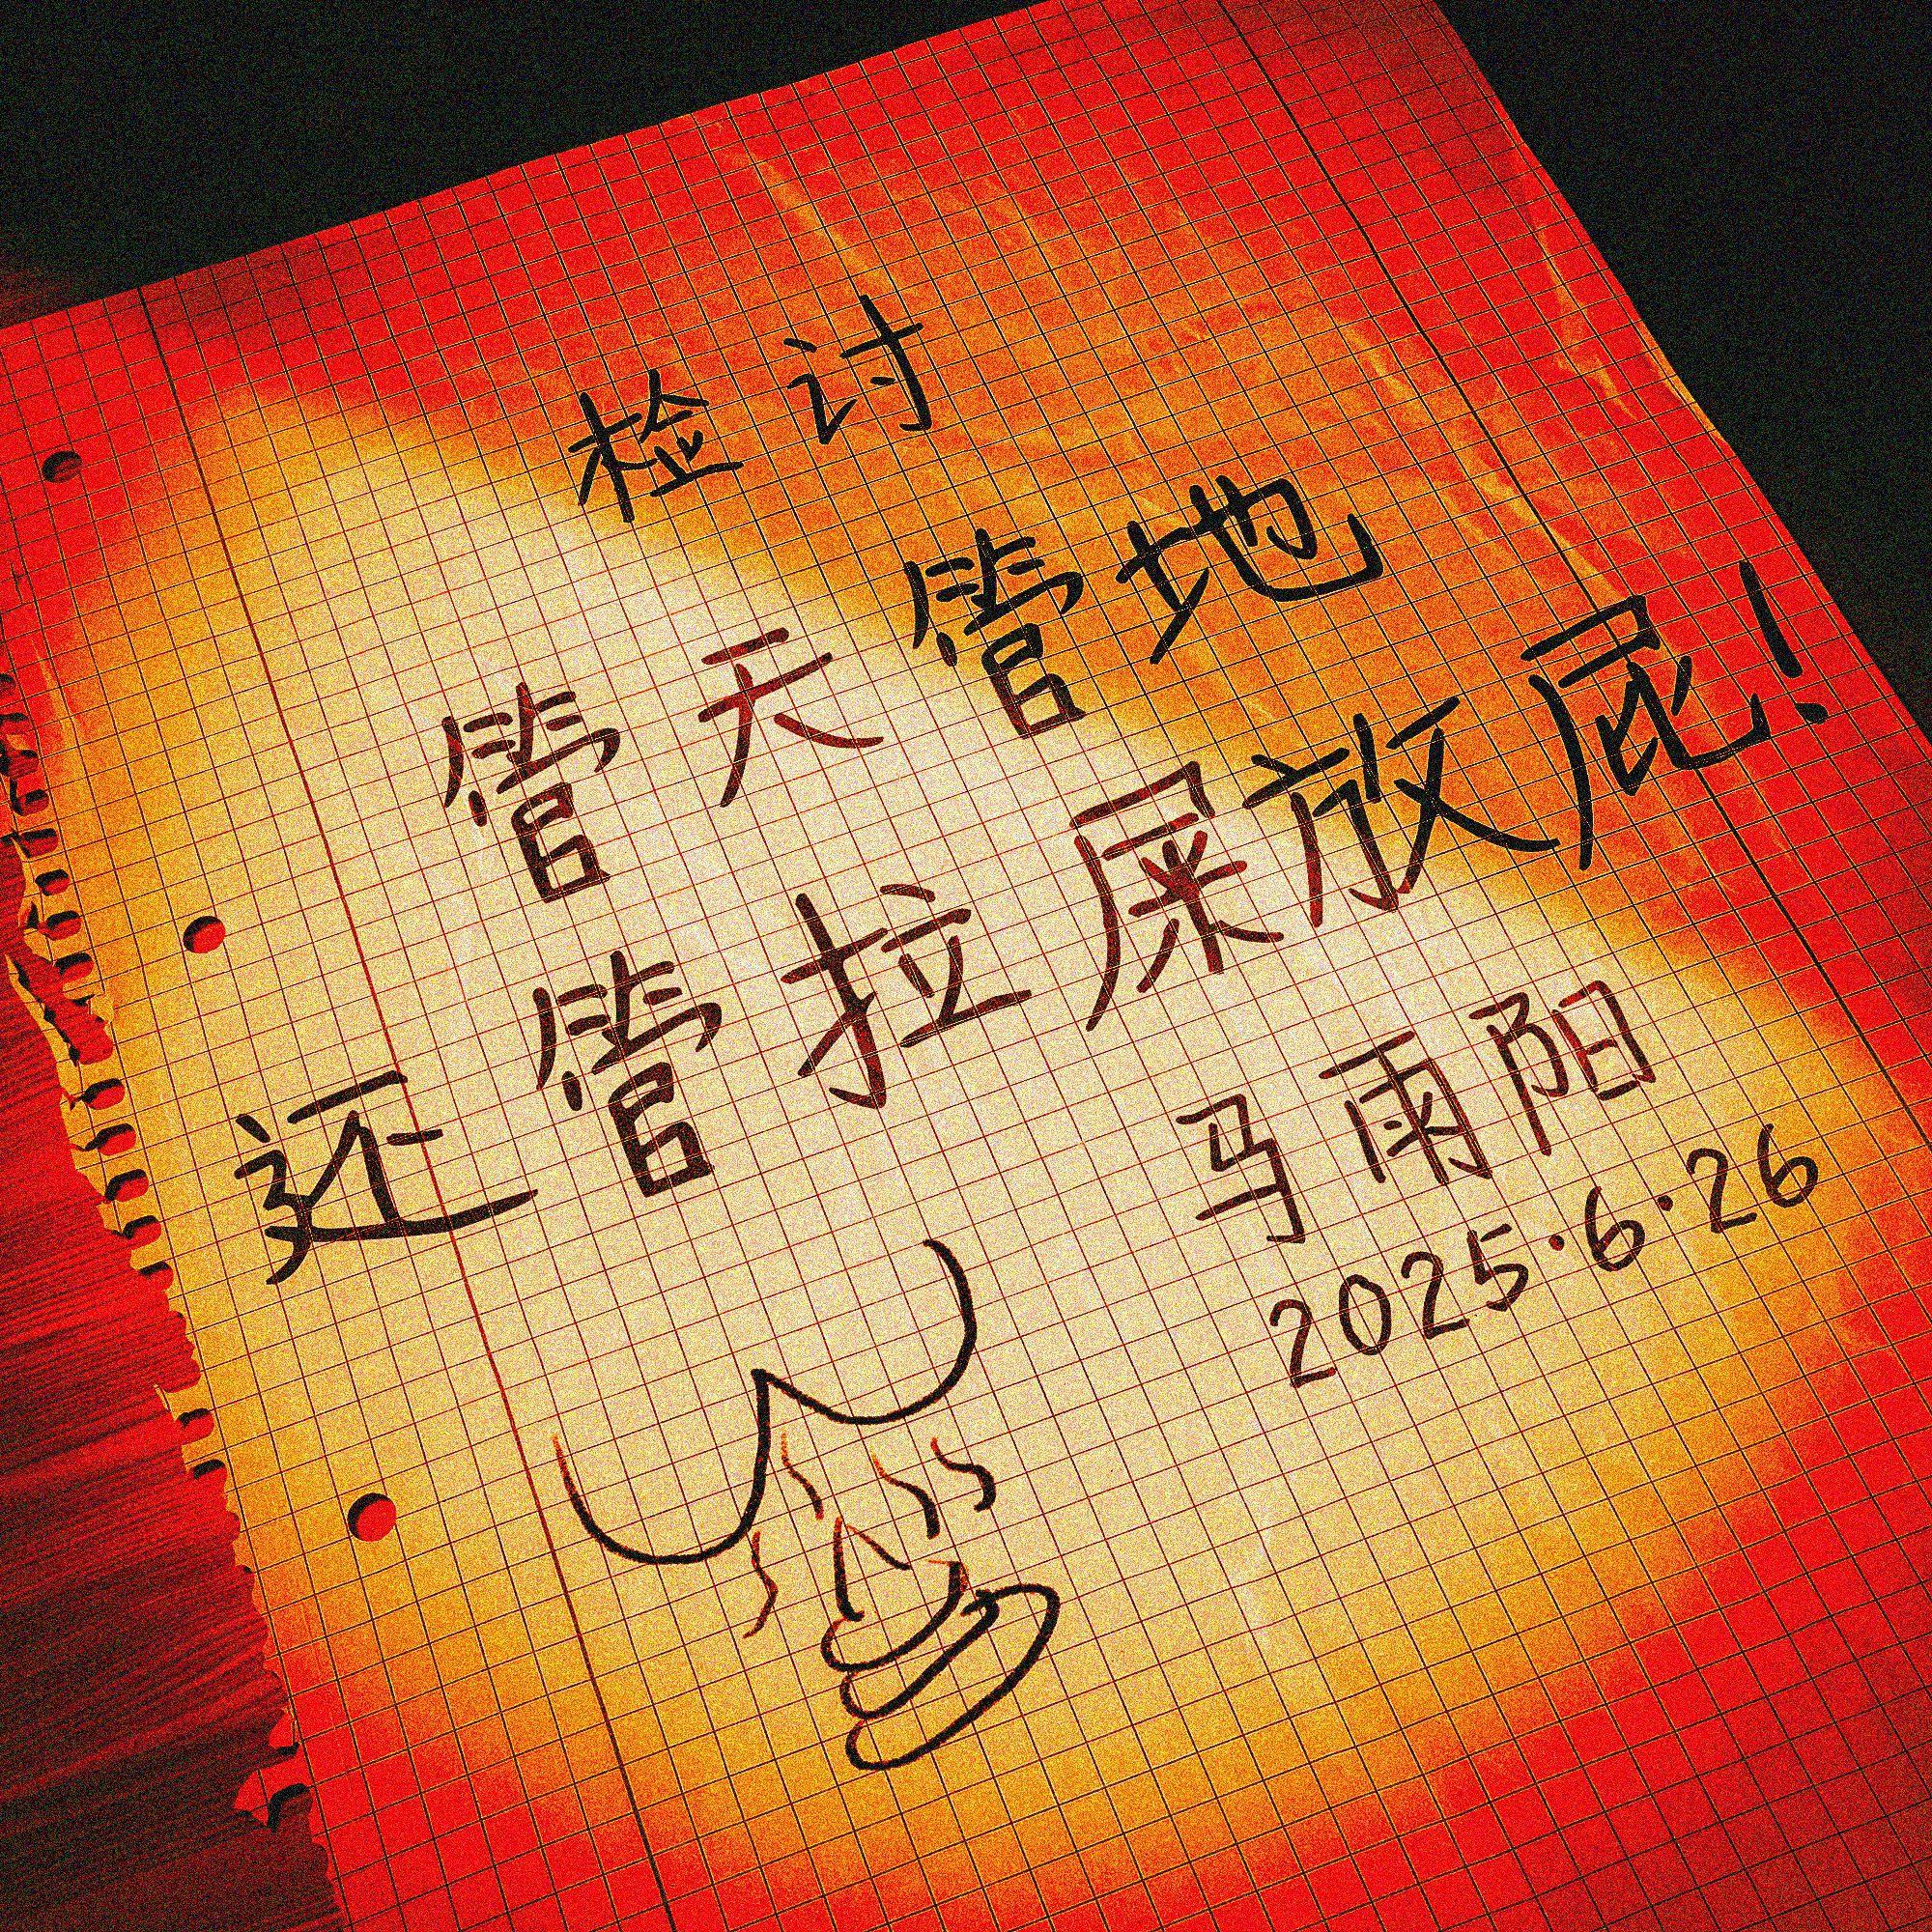 检讨
管天管地
还管拉屎放屁！
马雨阳
2025.6.26